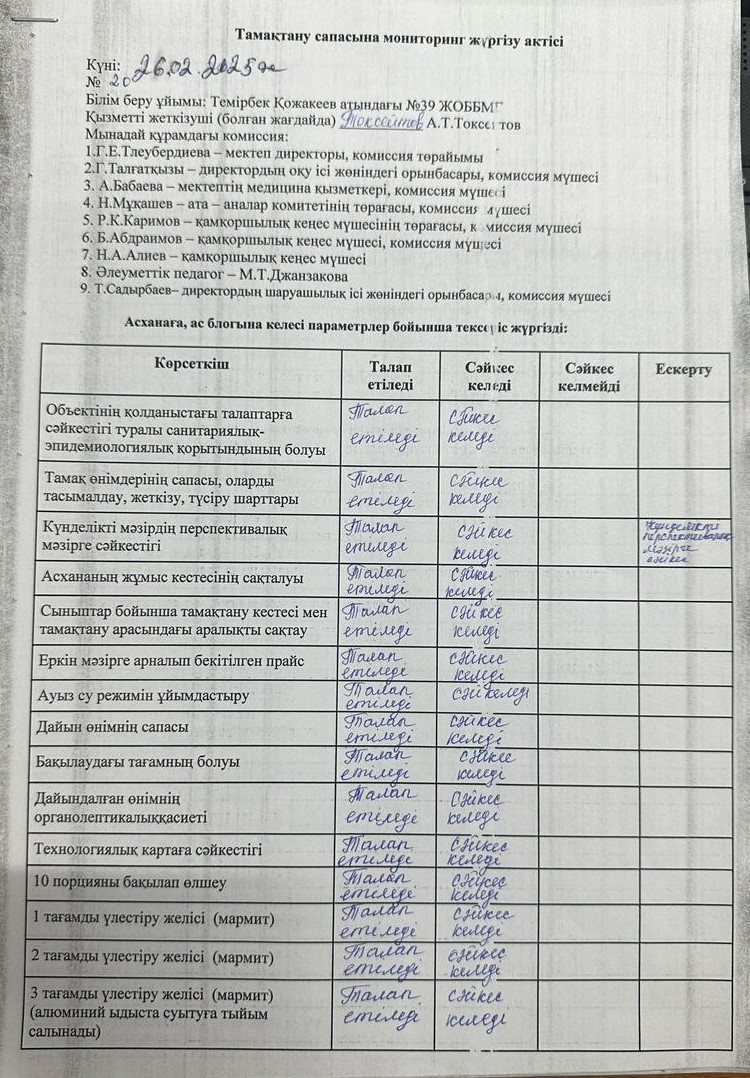 Тамақтану сапасына мониторинг жүргізу актісі
Күні: 26.02.2025ж
№ 20
Білім беру ұйымы: Темірбек Қожакеев атындағы №39 ЖОББМ
Қызметті жеткізуші (болған жағдайда) Токсеитов А.Т.Токсеитов
Мынадай құрамдағы комиссия:
1.Г.Е.Тлеубердиева – мектеп директоры, комиссия төрайымы
2.Г.Талғатқызы – директордың оқу ісі жөніндегі орынбасары, комиссия мүшесі
3. А.Бабаева – мектептің медицина қызметкері, комиссия мүшесі
4. Н.Мұқашев – ата – аналар комитетінің төрағасы, комиссия мүшесі
5. Р.К.Каримов – қамқоршылық кеңес мүшесінің төрағасы, комиссия мүшесі
6. Б.Абдраимов – қамқоршылық кеңес мүшесі, комиссия мүшесі
7. Н.А.Алиев – қамқоршылық кеңес мүшесі
8. Әлеуметтік педагог – М.Т.Джанзакова
9. Т.Садырбаев– директордың шаруашылық ісі жөніндегі орынбасары, комиссия мүшесі
Асханаға, ас блогына келесі параметрлер бойынша тексеріс жүргізді:
Көрсеткіш
Талап
етіледі
Сәйкес
келеді
Сәйкес
келмейді
Ескерту
Объектінің қолданыстағы талаптарға
сәйкестігі туралы санитариялық-
эпидемиологиялық қорытындының болуы
Талап
етіледі
сәйкес
келеді
Тамақ өнімдерінің сапасы, оларды
тасымалдау, жеткізу, түсіру шарттары
Талап
етіледі
сәйкес
келеді
Күнделікті мәзірдің перспективалық
мәзірге сәйкестігі
Талап
етіледі
сәйкес
келеді
Күнделікті
перспективалық
мәзірге
сәйкес
Асхананың жұмыс кестесінің сақталуы
Талап
етіледі
сәйкес
келеді
Сыныптар бойынша тамақтану кестесі мен
тамақтану арасындағы аралықты сақтау
Талап
етіледі
сәйкес
келеді
Еркін мәзірге арналып бекітілген прайс
Талап
етіледі
сәйкес
келеді
Ауыз су режимін ұйымдастыру
Талап
етіледі
сәй келеді
Дайын өнімнің сапасы
Талап
етіледі
сәйкес
келеді
Бақылаудағы тағамның болуы
Талап
етіледі
сәйкес
келеді
Дайындалған өнімнің
органолептикалыққасиеті
Талап
етіледі
сәйкес
келеді
Технологиялық картаға сәйкестігі
Талап
етіледі
сәйкес
келеді
10 порцияны бақылап өлшеу
Талап
етіледі
сәйкес
келеді
1 тағамды үлестіру желісі (мармит)
Талап
етіледі
сәйкес
келеді
2 тағамды үлестіру желісі (мармит)
Талап
етіледі
сәйкес
келеді
3 тағамды үлестіру желісі (мармит)
(алюминий ыдыста суытуға тыйым
салынады)
Талап
етіледі
сәйкес
келеді